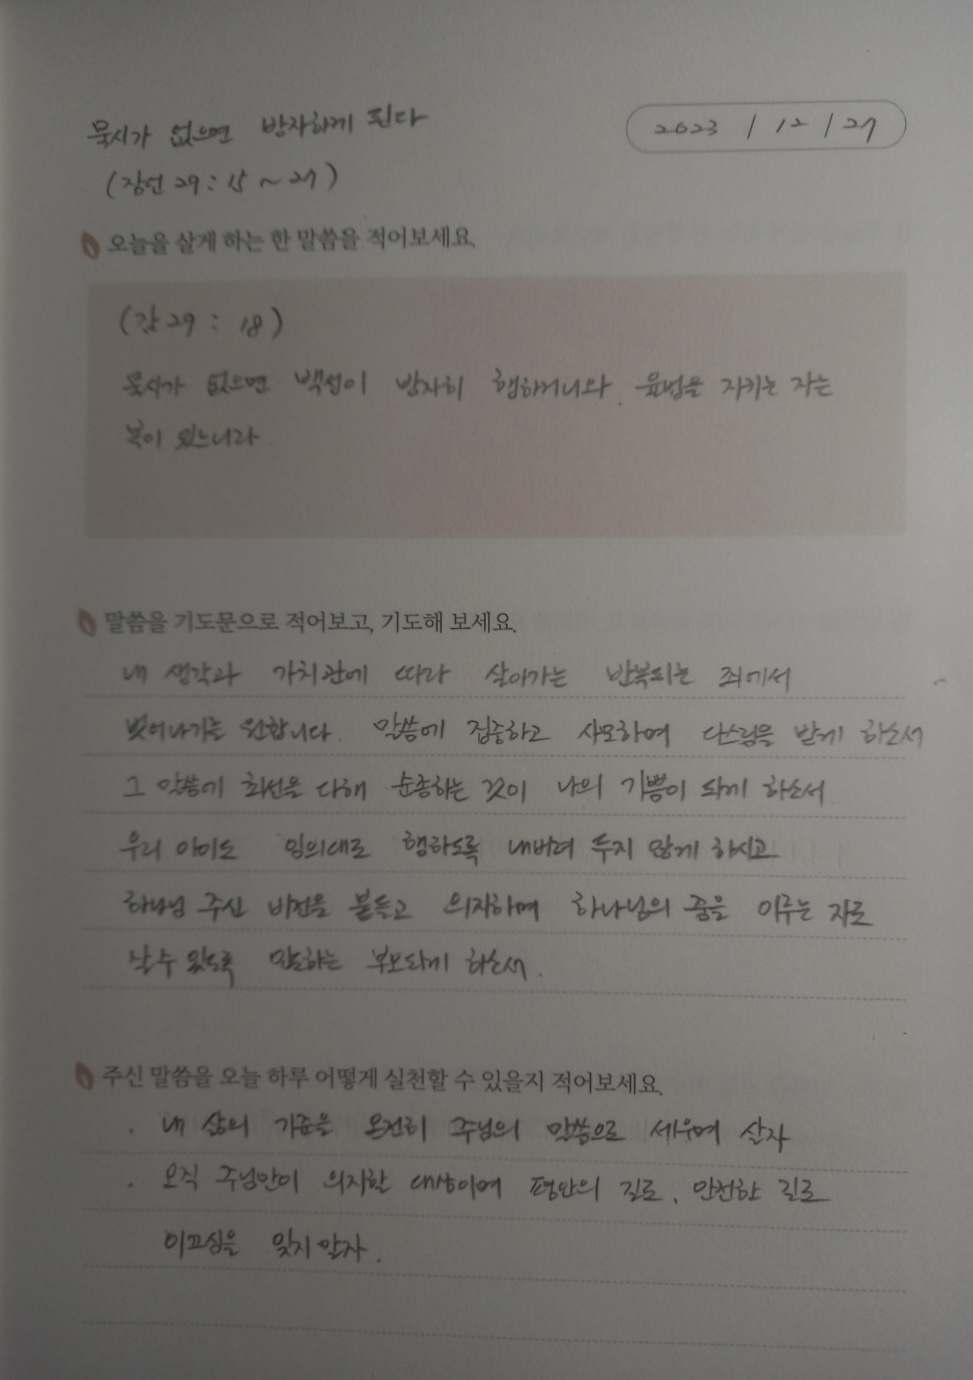 묵시가 없으면 방자하게 된다
2023 / 12 / 27
(잠언 29 : 15 ~ 27)
오늘을 살게 하는 한 말씀을 적어보세요.
(잠 29 : 18)
묵시가 없으면 백성이 방자히 행하거니와 율법을 지키는 자는
복이 있느니라
말씀을 기도문으로 적어보고, 기도해 보세요.
내 생각과 가치관에 따라 살아가는 반복되는 죄에서
벗어나기를 원합니다. 말씀에 집중하고 사모하며 다스림을 받게 하소서
그 말씀에 최선을 다해 순종하는 것이 나의 기쁨이 되게 하소서
우리 아이도 임의대로 행하도록 내버려 두지 않게 하시고
하나님 주신 비전을 붙들고 의지하며 하나님의 꿈을 이루는 자로
살 수 있도록 인도하는 부모되게 하소서.
주신 말씀을 오늘 하루 어떻게 실천할 수 있을지 적어보세요.
. 내 삶의 기준을 온전히 주님의 말씀으로 세우며 살자
. 오직 주님만이 의지할 대상이며 평안의 길로, 안전한 길로
이끄심을 잊지 말자.